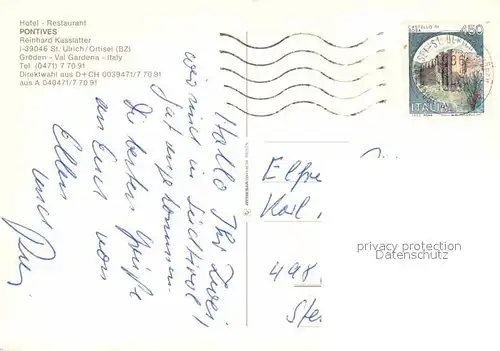 Hotel - Restaurant
PONTIVES
Reinhard Kasslatter
I-39046 St. Ulrich/Ortisei (BZ)
Gröden - Val Gardena - Italy
Tel. (0471) 7 70 91
Direktwahl aus D+CH 0039471/7 70 91
aus A 040471/7 70 91
Hallo Ihr Zwei,
wir sind in Südtirol
gut angekommen.
Die besten Grüße
an Euch von
Ellen
und
CASTELLO DI
450
ITALIA
Elfr
Karl
498
Ste
privacy protection
Datenschutz